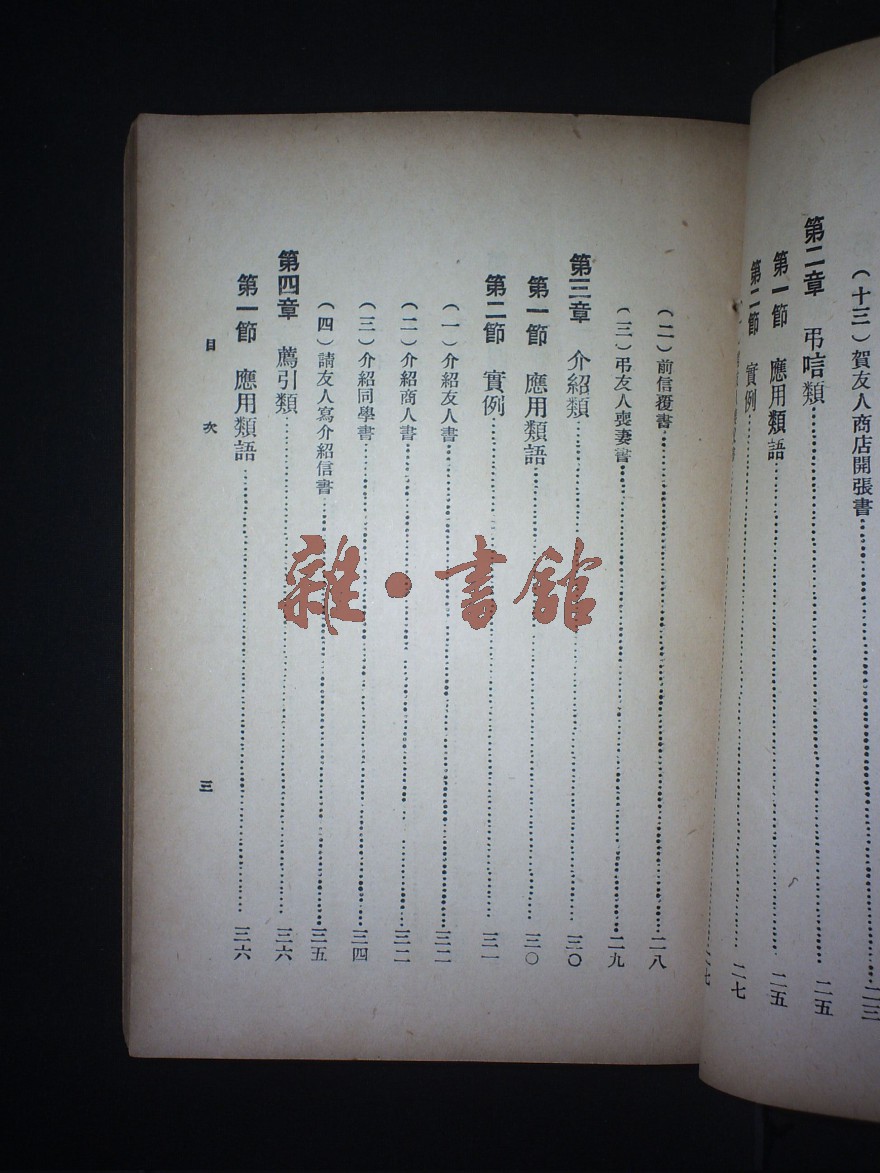 （十三）賀友人商店開張書……二三
第二章　弔唁類……二五
第一節　應用類語……二五
第二節　實例……二七
（二）前信覆書……二八
（三）弔友人喪妻書……二九
第三章　介紹類……三〇
第一節　應用類語……三〇
第二節　實例……三一
（一）介紹友人書……三二
（二）介紹商人書……三二
（三）介紹同學書……三四
（四）請友人寫介紹信書……三五
第四章　薦引類……三六
第一節　應用類語……三六
目次
三
雜・書館